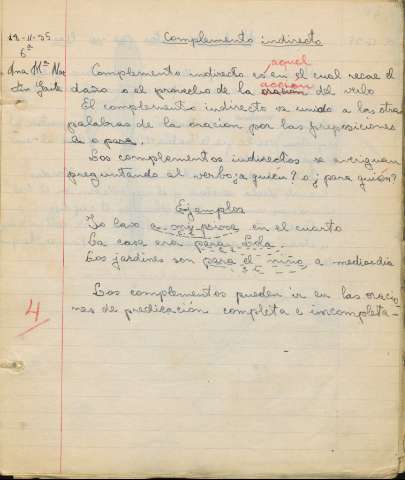 18-11-35
6ª
Complemento indirecto
Ana Mª
aquel
Complemento indirecto es en el cual recae el
daño o el provecho de la oración accion del verbo
El complemento indirecto va unido a las otras
palabras de la oracion por las preposiciones
a o para.
Los complementos indirectos se averiguan
preguntando al verbo ¿a quien? o ¿para quién?
Ejemplos
Yo lavo a mi perro en el cuarto
La casa era para Lola.
Los jardines son para el niño a mediodia
4
Los complementos pueden ir en las oracio-
nes de predicación completa e incompleta-